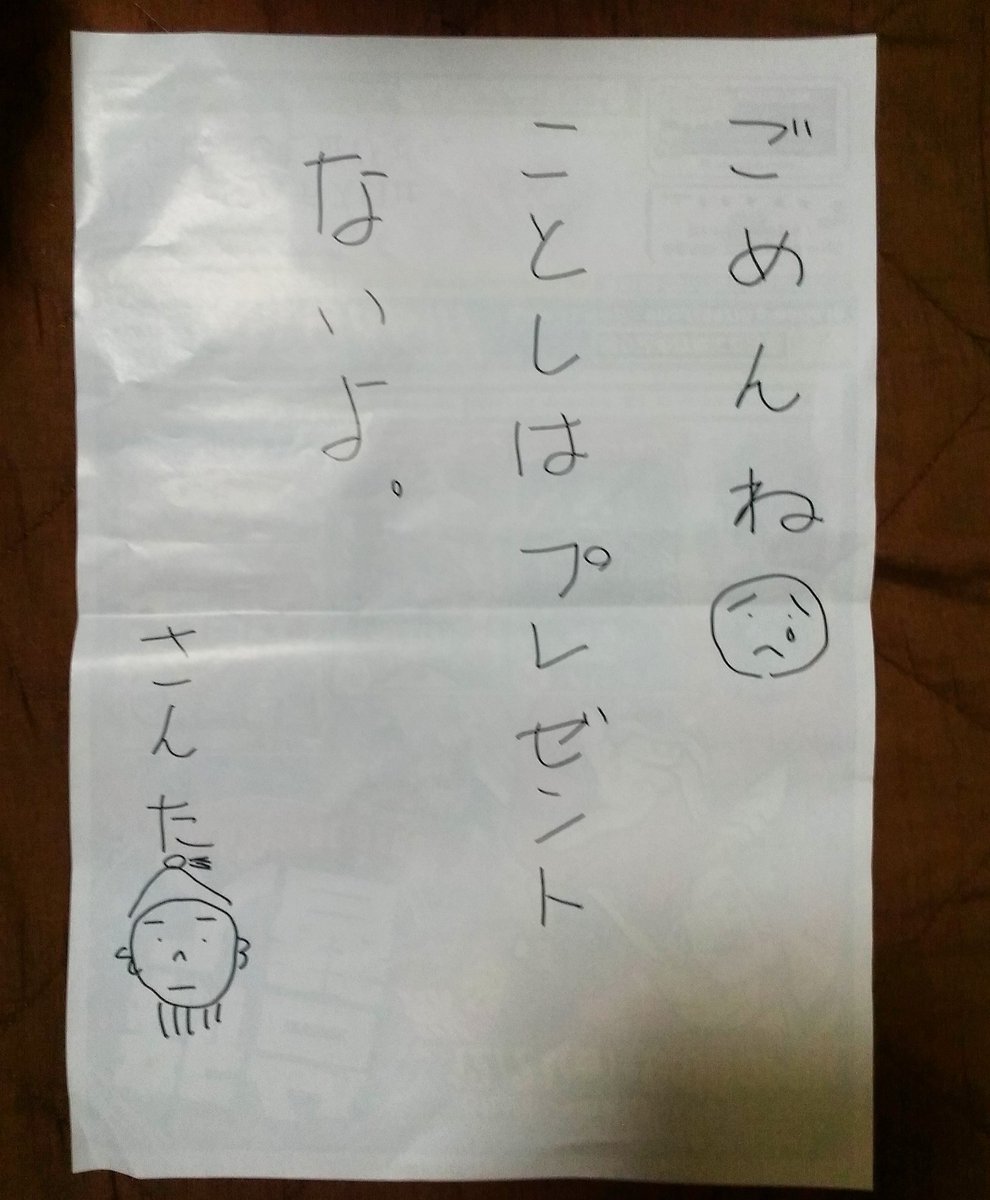 ごめんね
ことしはプレゼント
ないよ。
さんた